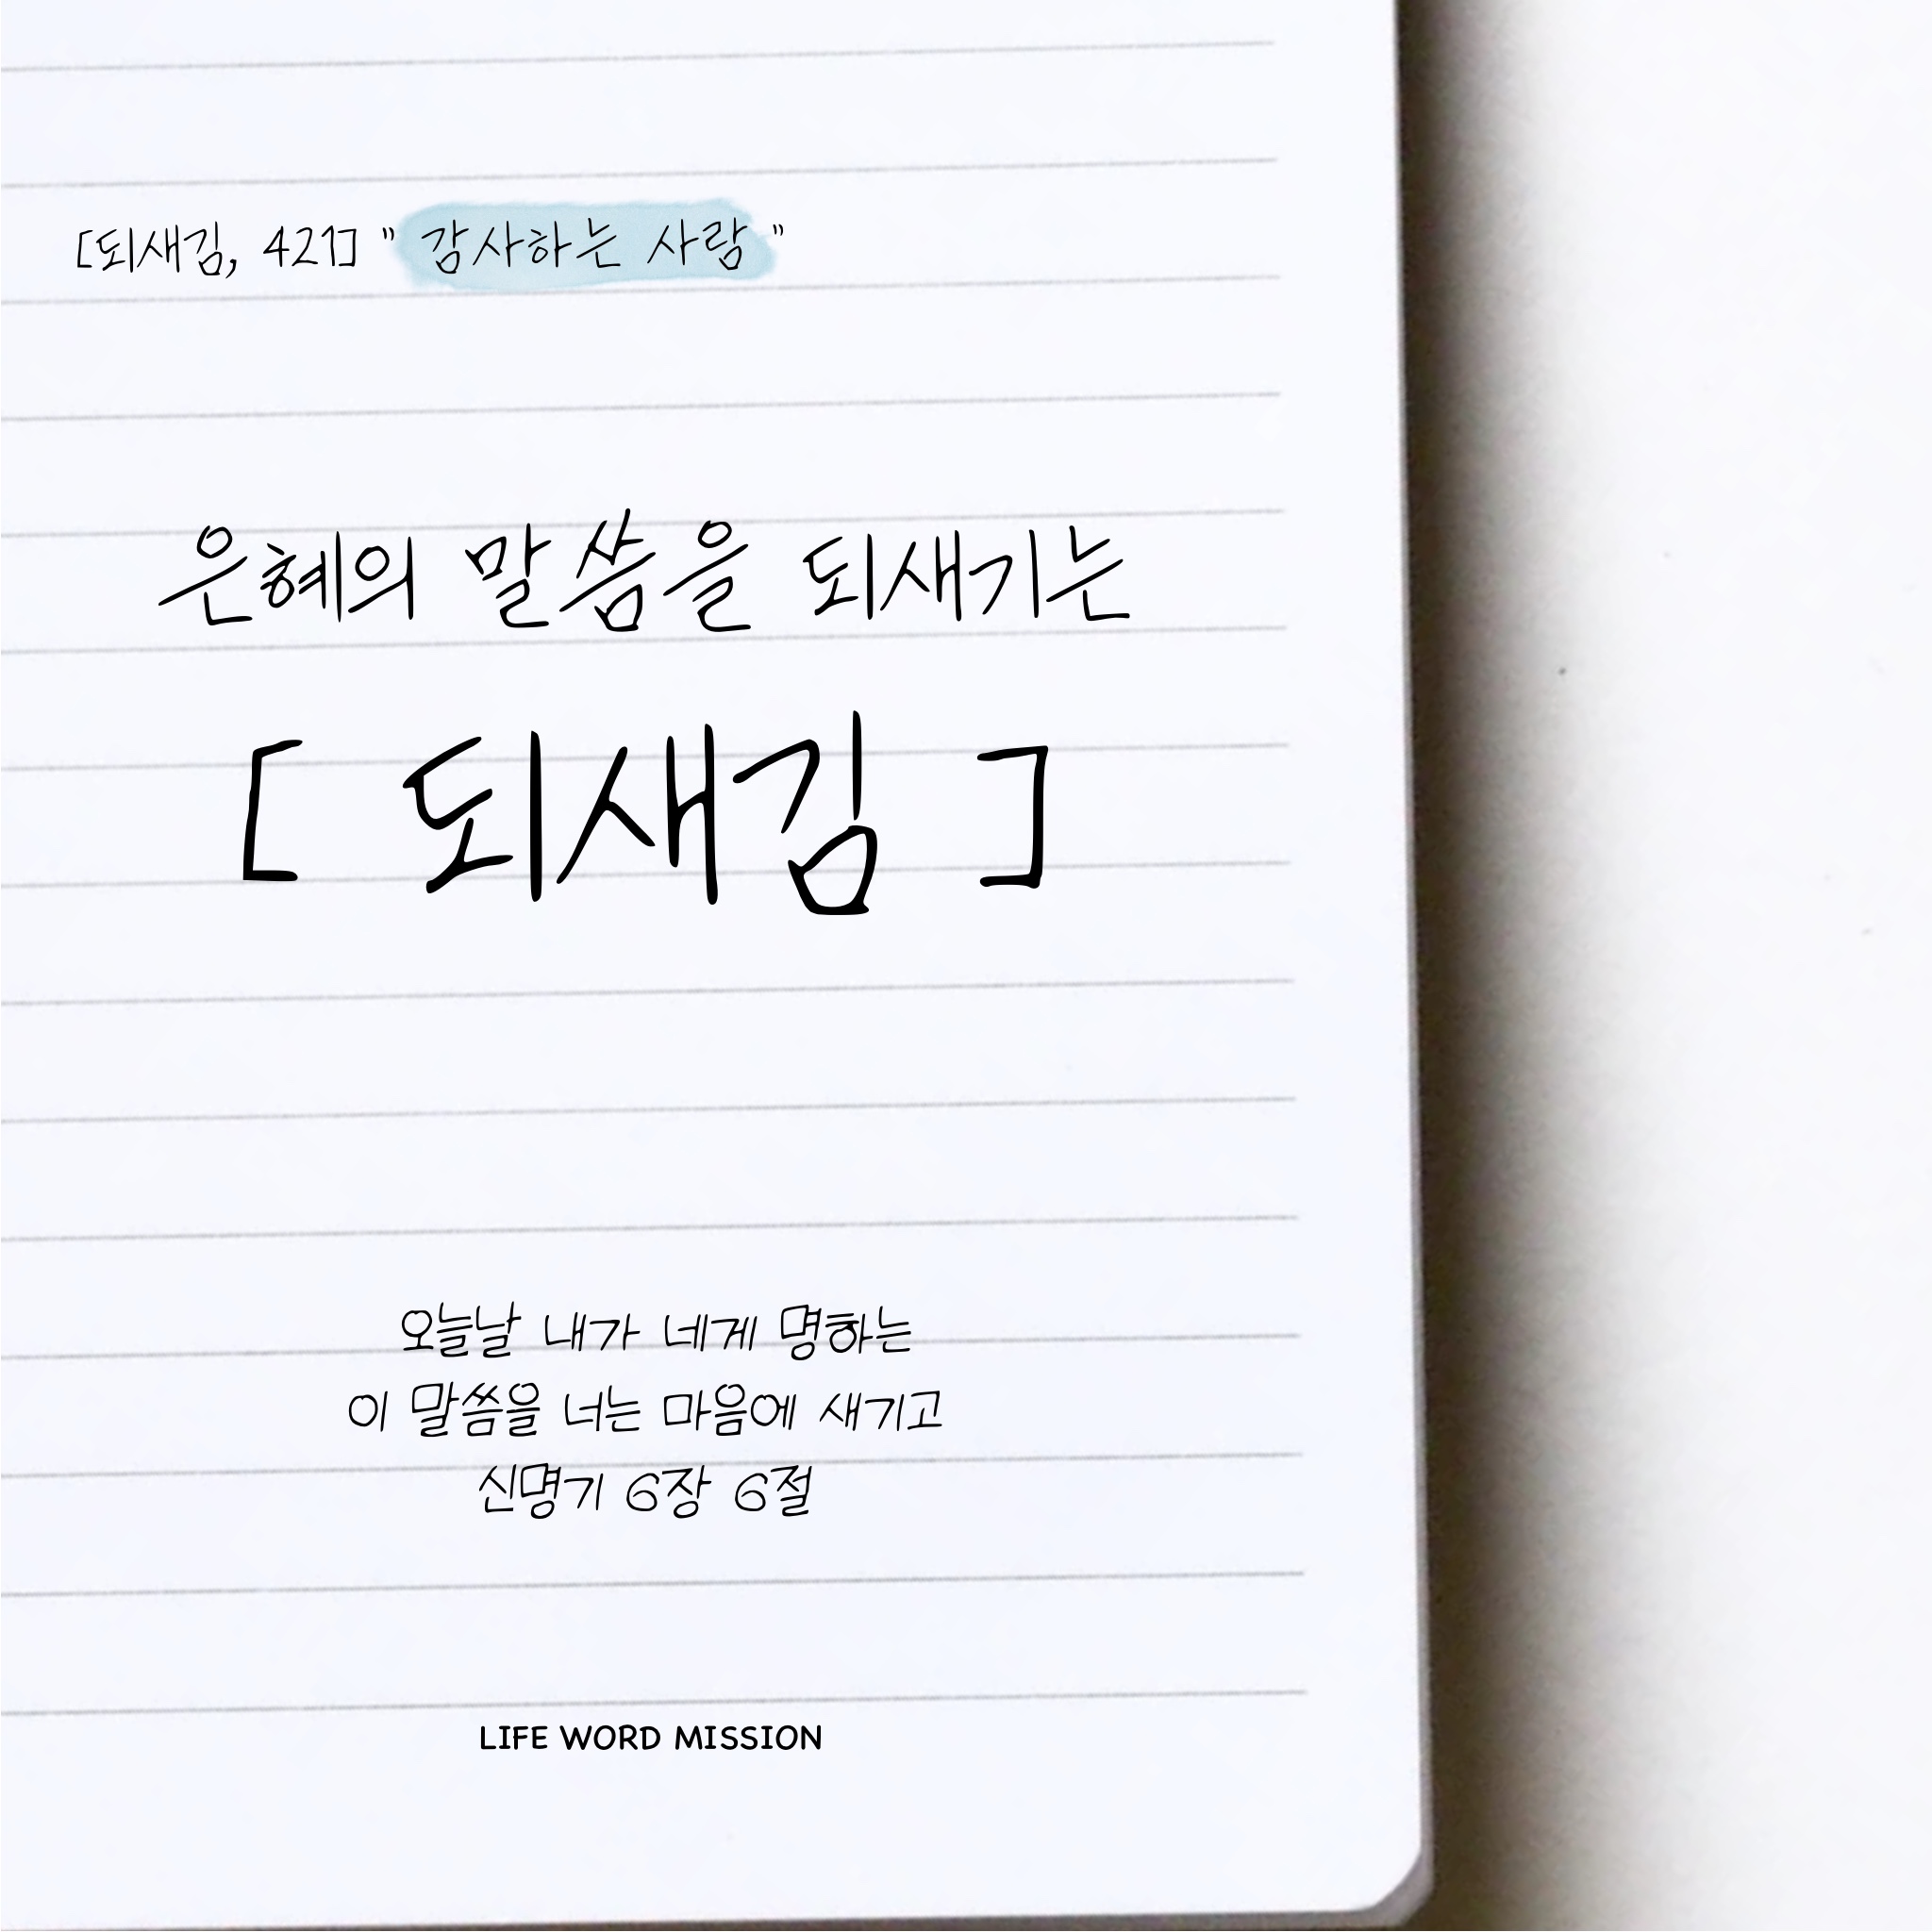 [되새김, 421] " 감사하는 사람 "
은혜의 말씀을 되새기는
[ 되새김 ]
오늘날 내가 네게 명하는
이 말씀을 너는 마음에 새기고
신명기 6장 6절
LIFE WORD MISSION